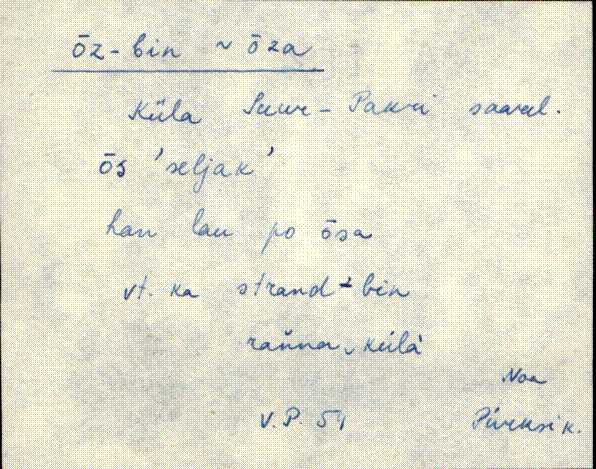 ōz-bin ~ ōza
Küla Suur-Pakri saarel.
ōs 'seljak'
han lau po ōsa
vt. ka strand-bin
ranna küla
Noa
V.P. 51 Pürksi k.